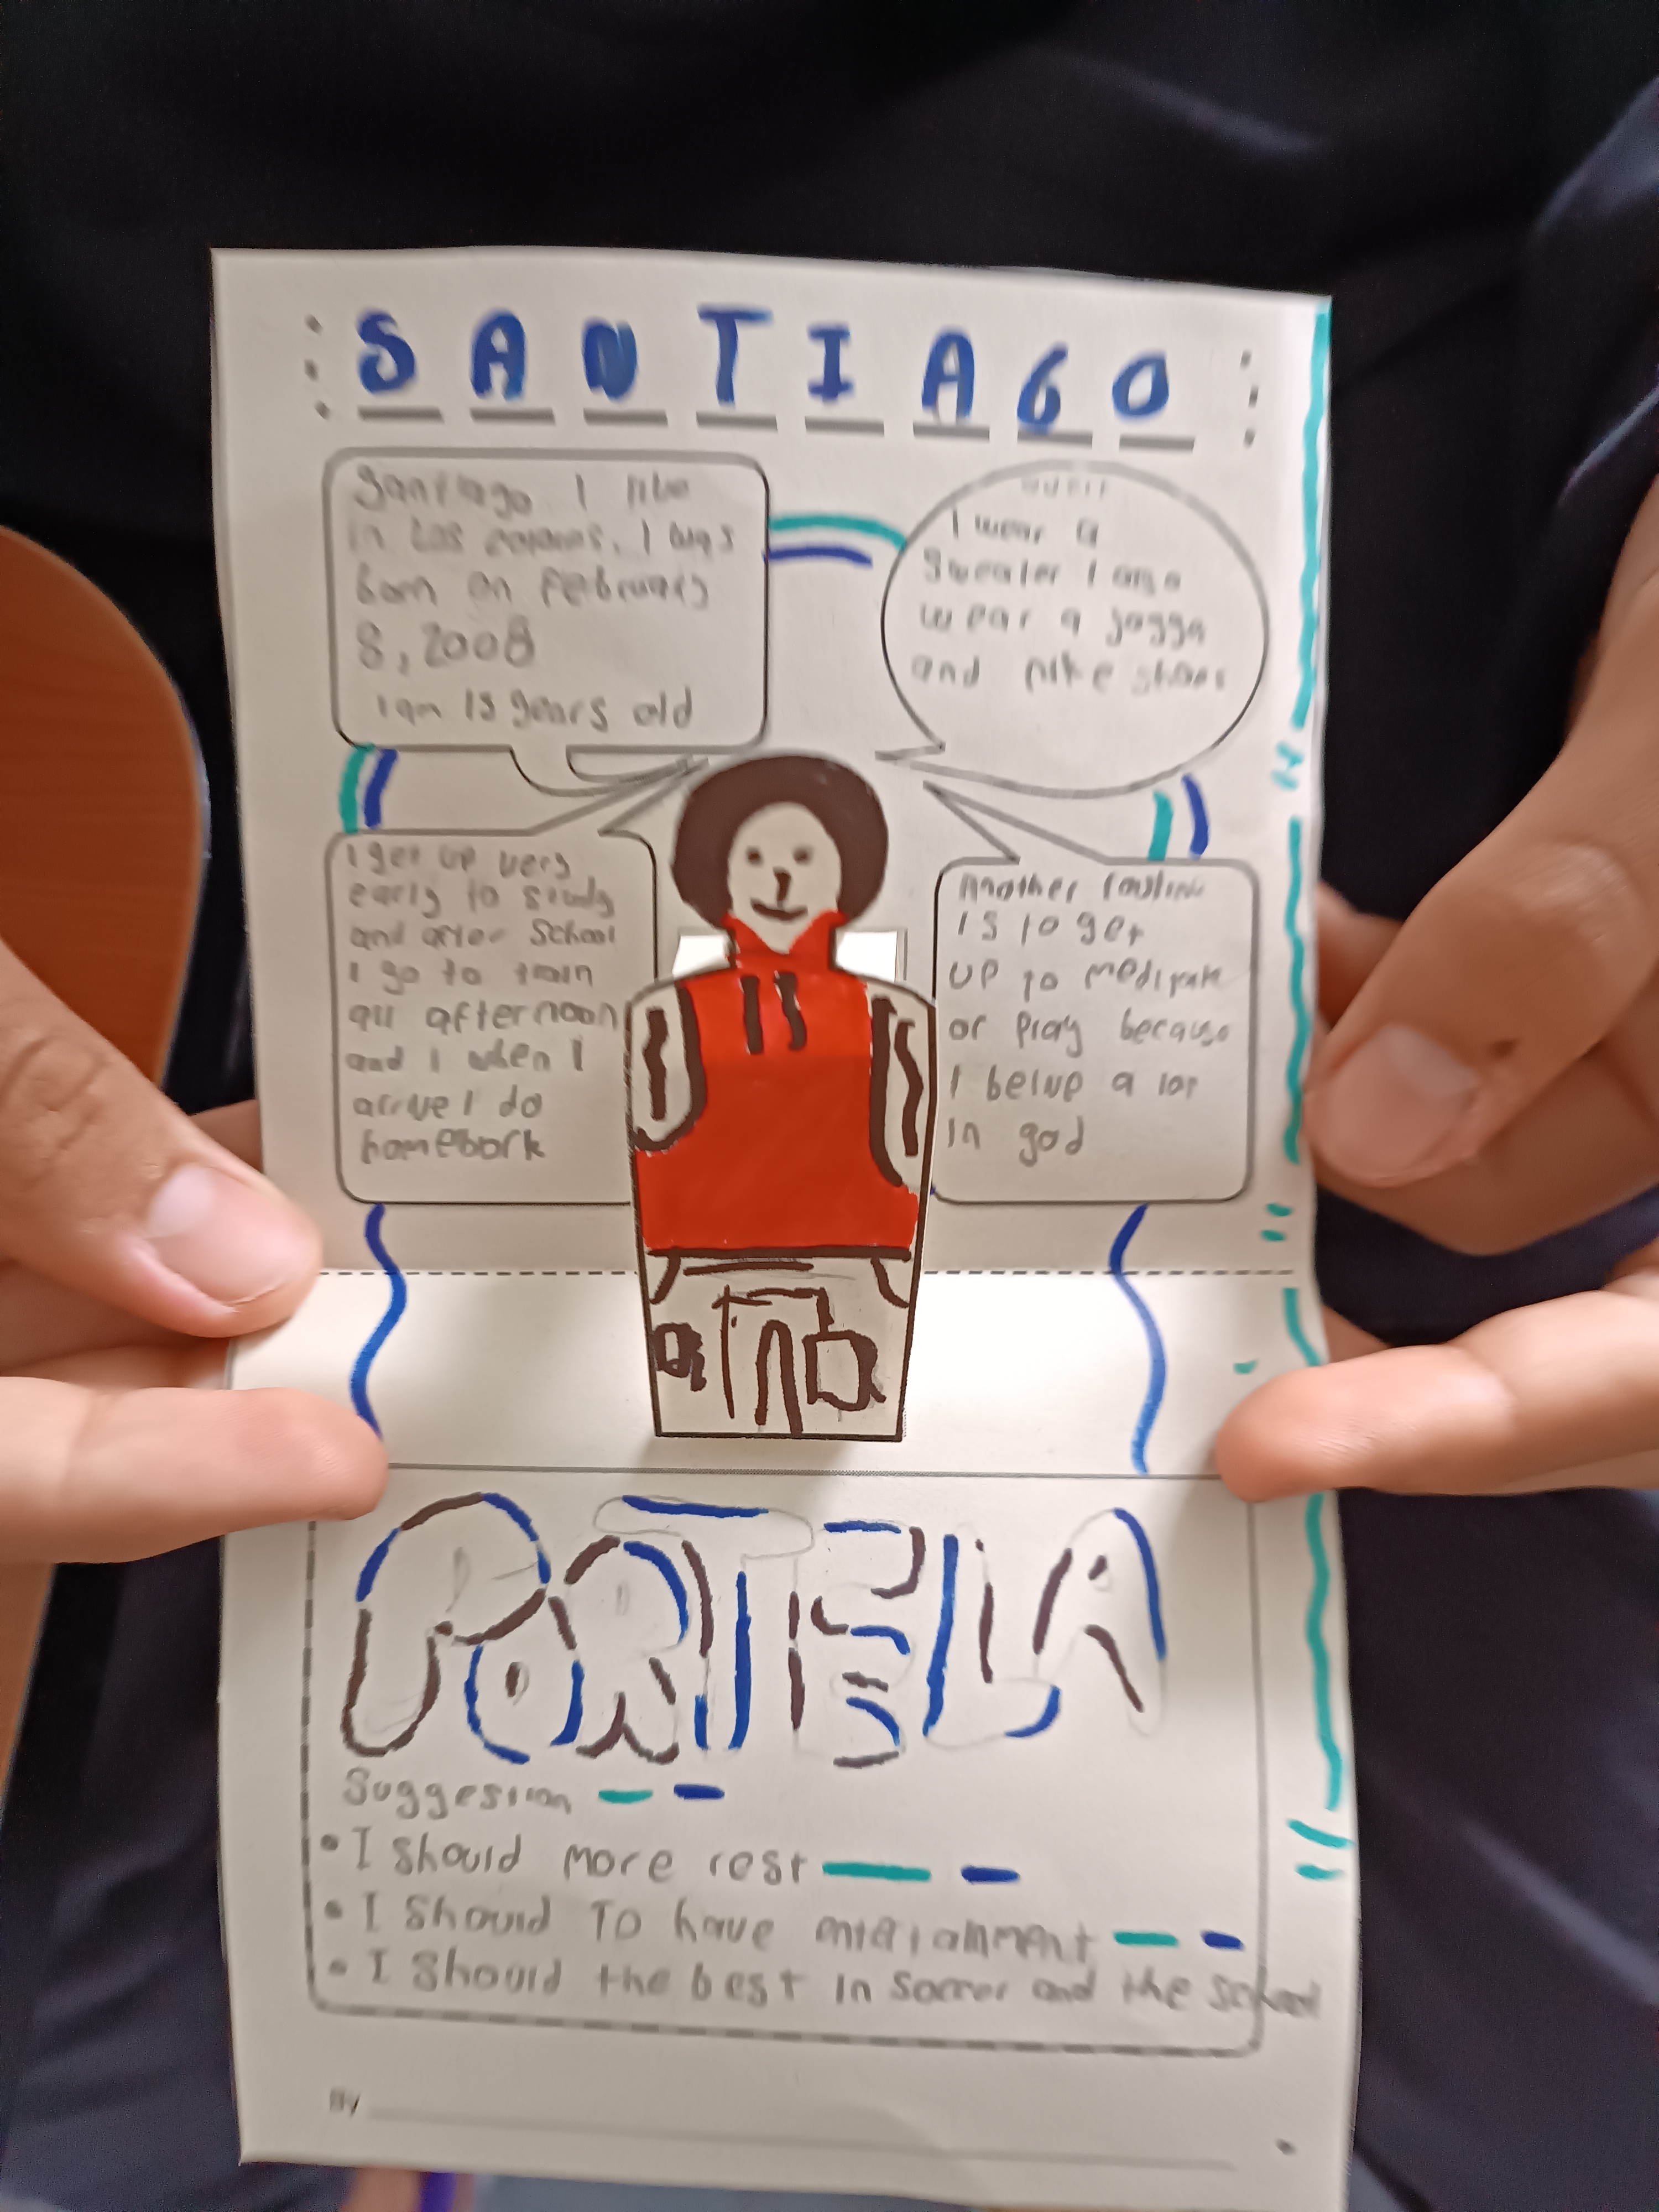 SANTIAGO
Santiago I like
in Los colores. I was
born on February
8, 2008
I am 15 years old
outfit
I wear a
Sweater I also
wear a jogga
and nike shoes
I get up very
early to study
and after School
I go to train
all afternoon
and I when I
arrive I do
homework
Another routine
is to get
up to meditate
or pray because
I belive a lot
in god
PORTELA
Suggestion
• I should more rest
• I should To have entertainment
• I should the best in soccer and the school
By